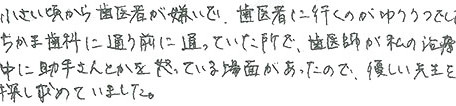 小さい頃から歯医者が嫌いで、歯医者に行くのがゆううつでし
ちかま歯科に通う前に通っていた所で、歯医師が私の治療
中に助手さんとかを怒っている場面があったので、優しい先生を
探し求めていました。